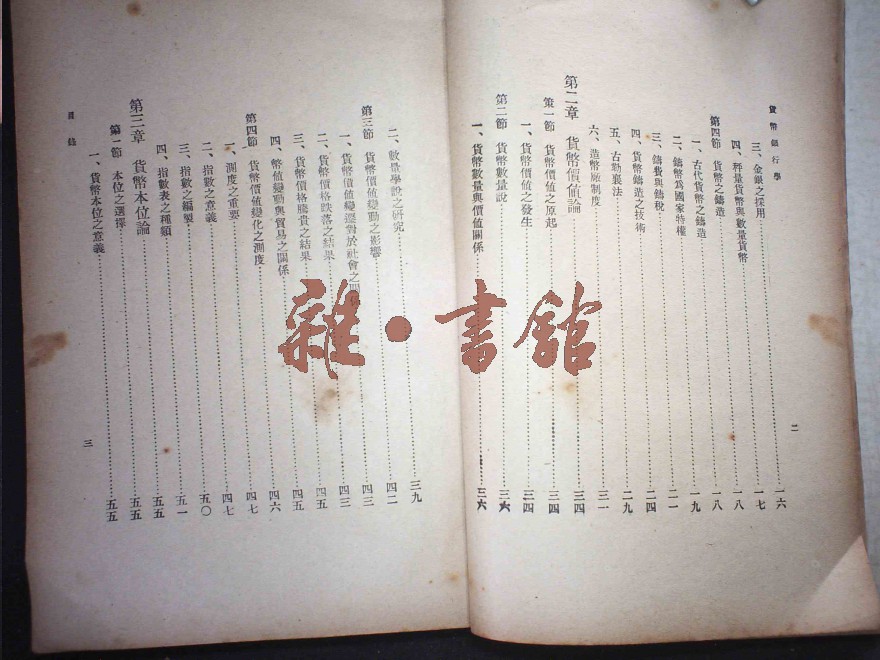 貨幣銀行學
二
三、金銀之採用……一六
四、秤量貨幣與數量貨幣……一七
第四節 貨幣之鑄造……一八
一、古代貨幣之鑄造……一八
二、鑄幣爲國家特權……一九
三、鑄費與鑄稅……二一
四、貨幣鑄造之技術……二四
五、古勒襄法……二九
六、造幣廠制度……三一
第二章 貨幣價値論……三四
第一節 貨幣價値之原起……三四
一、貨幣價値之發生……三四
第二節 貨幣數量說……三六
一、貨幣數量與價値關係……三六
二、數量學說之研究……三九
第三節 貨幣價値變動之影響……四二
一、貨幣價値變遷對於社會之關係……四三
二、貨幣價格跌落之結果……四三
三、貨幣價格騰貴之結果……四五
四、幣値變動與貿易之關係……四五
第四節 貨幣價値變化之測度……四六
一、測度之重要……四七
二、指數之意義……四七
三、指數之編製……五〇
四、指數表之種類……五一
第三章 貨幣本位論……五五
第一節 本位之選擇……五五
一、貨幣本位之意義……五五
目錄
三
雜·書館